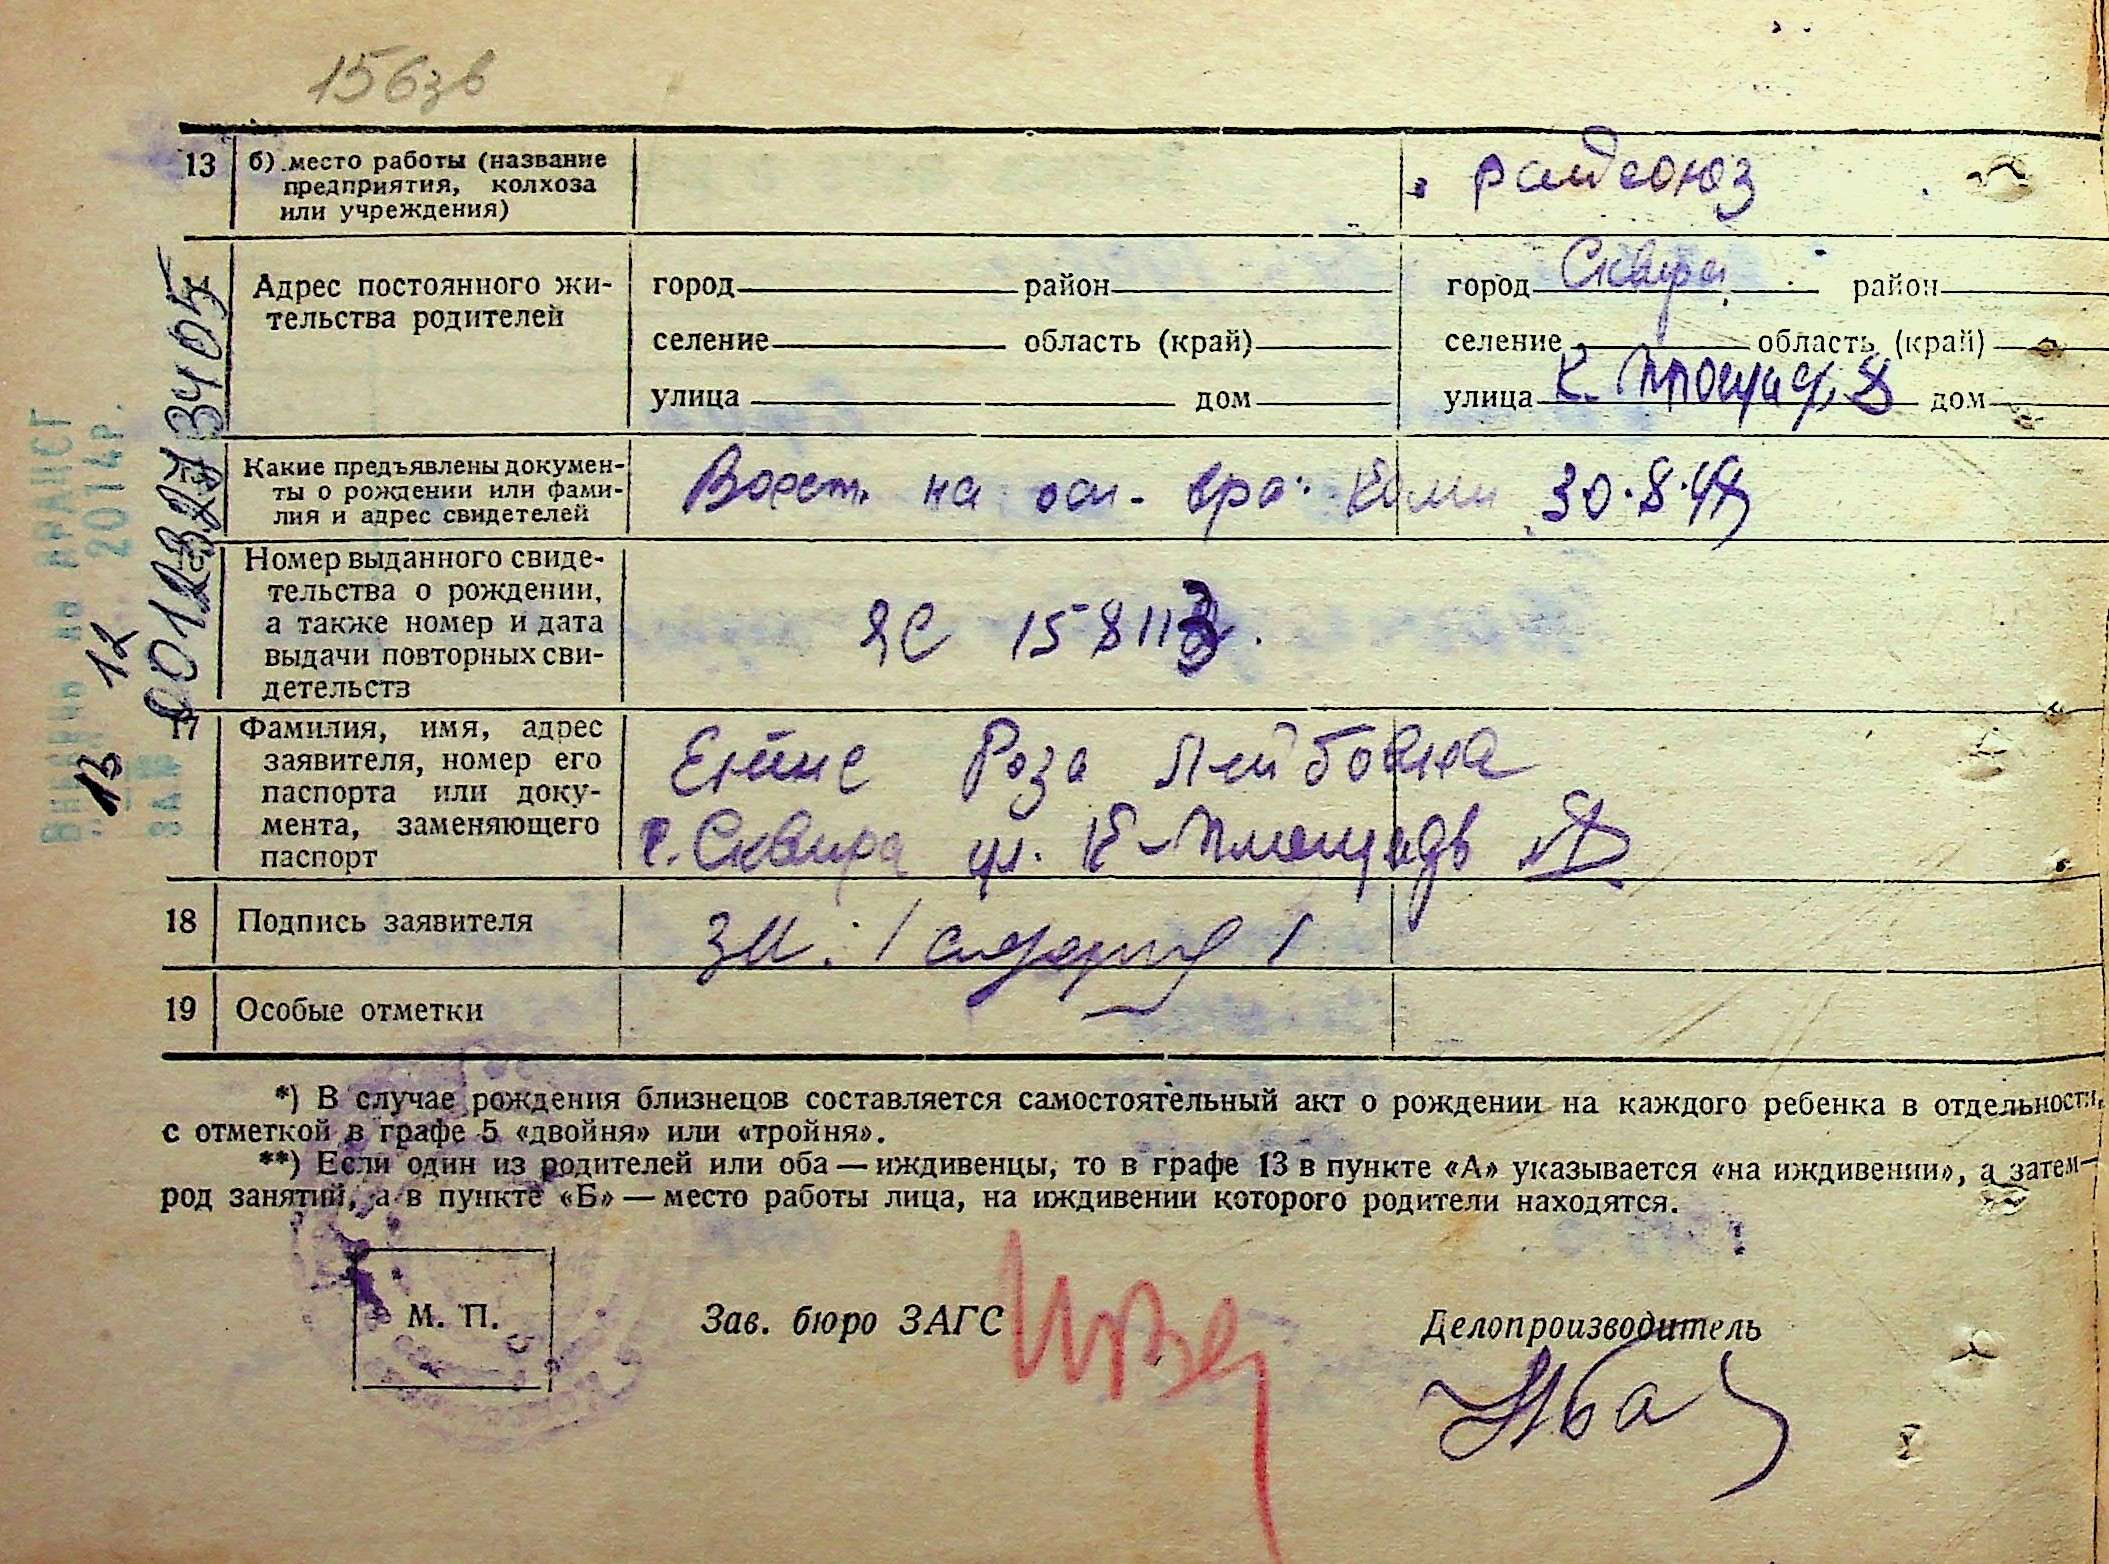 156зв
13 б) место работы (название
предприятия, колхоза
или учреждения)
райсоюз
Адрес постоянного жи-
тельства родителей
город район город Сквира район
селение область (край) селение область (край)
улица дом улица К. Площадь 8 дом
Какие предъявлены докумен-
ты о рождении или фами-
лия и адрес свидетелей
Восст. на осн. вра. коми 30.8.49
Номер выданного свиде-
тельства о рождении,
а также номер и дата
выдачи повторных сви-
детельств
ЯС 158113.
17 Фамилия, имя, адрес
заявителя, номер его
паспорта или доку-
мента, заменяющего
паспорт
Роза Лейбовна
г. Сквира ул. К-Площадь
18 Подпись заявителя
19 Особые отметки
*) В случае рождения близнецов составляется самостоятельный акт о рождении на каждого ребенка в отдельности,
с отметкой в графе 5 «двойня» или «тройня».
**) Если один из родителей или оба — иждивенцы, то в графе 13 в пункте «А» указывается «на иждивении», а затем—
род занятий, а в пункте «Б» — место работы лица, на иждивении которого родители находятся.
М. П.
Зав. бюро ЗАГС
Делопроизводитель
Внесено до ДРАЦСГ
13 12 2014р.
ЗА №
00123273405